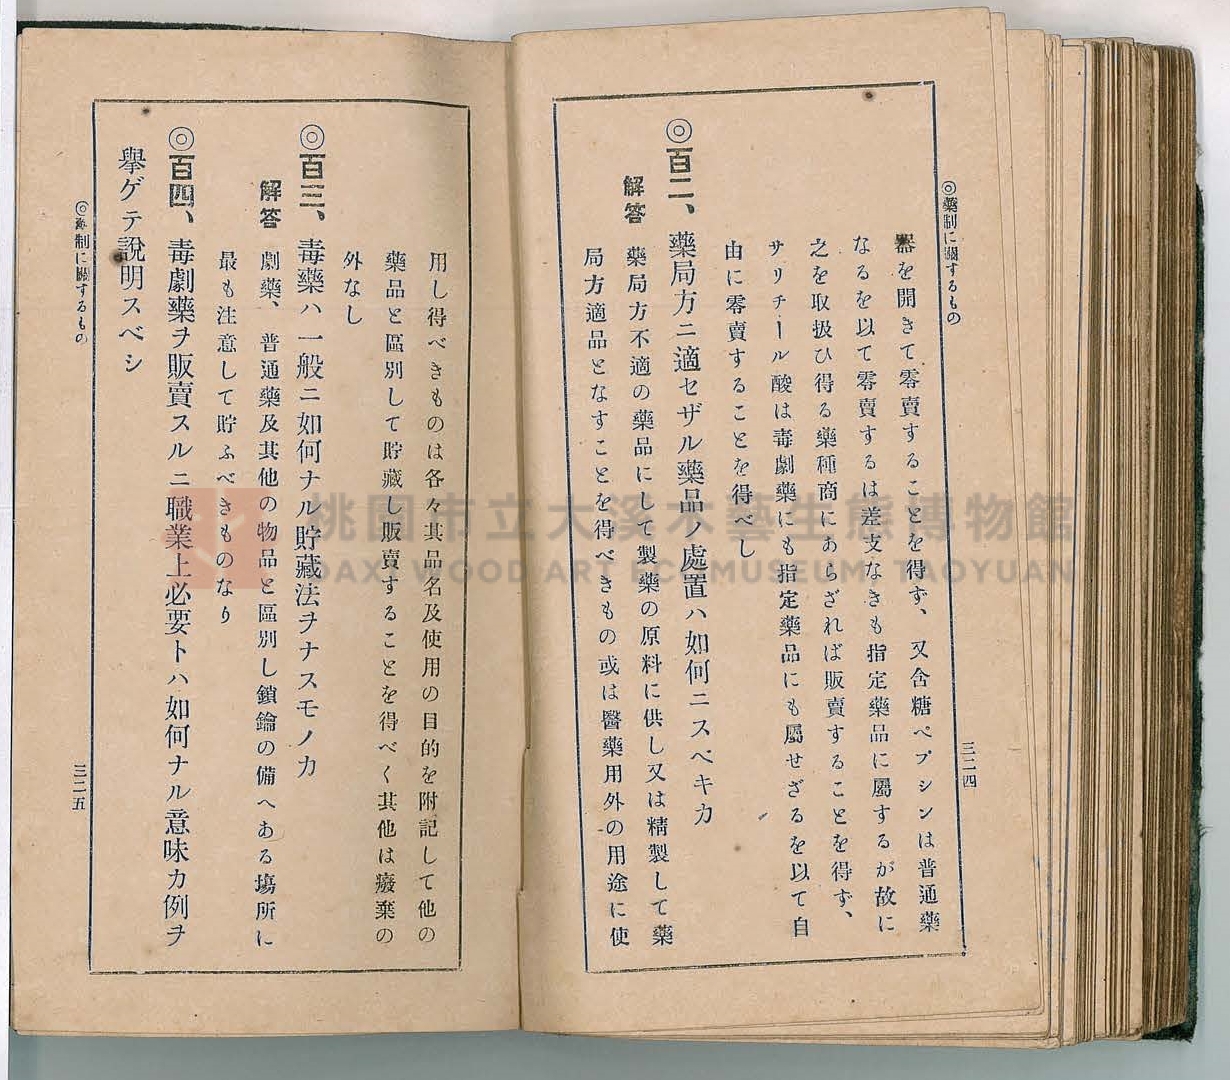 ◎藥制に關するもの
三二四
器を開きて零賣することを得ず、又含糖ペプシンは普通藥
なるを以て零賣するは差支なきも指定藥品に屬するが故に
之を取扱ひ得る藥種商にあらざれば販賣することを得ず、
サリチール酸は毒劇藥にも指定藥品にも屬せざるを以て自
由に零賣することを得べし
◎百二、藥局方ニ適セザル藥品ノ處置ハ如何ニスベキカ
解答 藥局方不適の藥品にして製藥の原料に供し又は精製して藥
局方適品となすことを得べきもの或は醫藥用外の用途に使
用し得べきものは各々其品名及使用の目的を附記して他の
藥品と區別して貯藏し販賣することを得べく其他は癈棄の
外なし
◎百三、毒藥ハ一般ニ如何ナル貯藏法ヲナスモノカ
解答 劇藥、普通藥及其他の物品と區別し鎖鑰の備へある塲所に
最も注意して貯ふべきものなり
◎百四、毒劇藥ヲ販賣スルニ職業上必要トハ如何ナル意味カ例ヲ
擧ゲテ說明スベシ
制に關するもの
三二五
桃園市立大溪木藝生態博物館
DAXI WOOD ART ECOMUSEUM, TAOYUAN